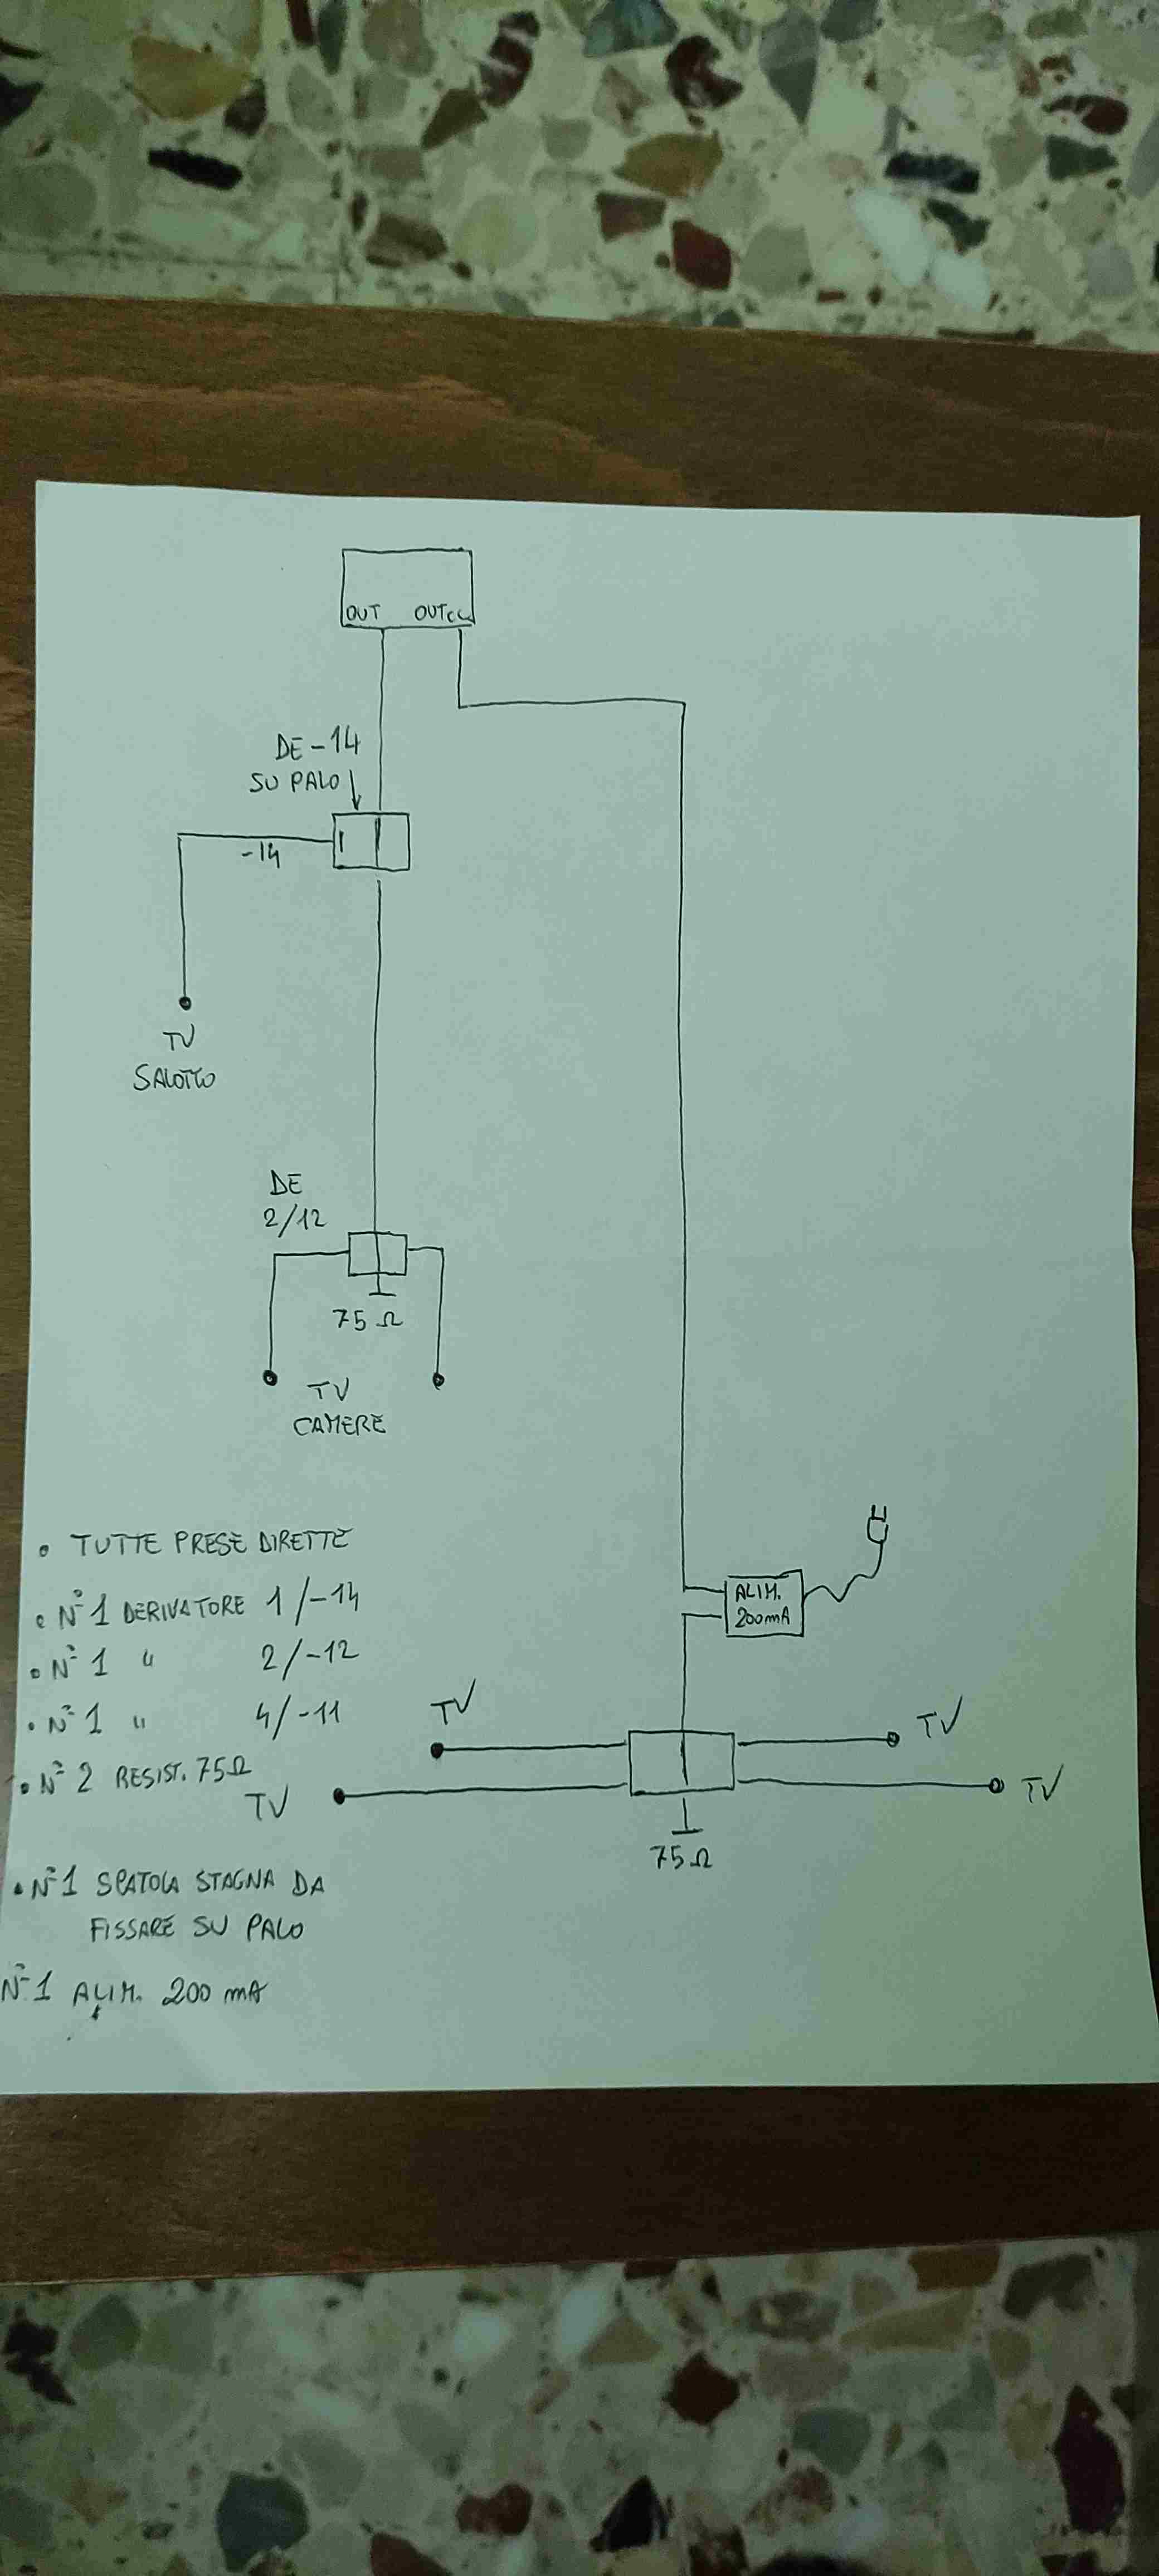 OUT OUTCC
DE-14
SU PALO
-14
TV
SALOTTO
DE
2/12
75 Ω
TV
CAMERE
ALIM.
200mA
TV
TV
TV
TV
75 Ω
• TUTTE PRESE DIRETTE
• N° 1 DERIVATORE 1/-14
• N° 1 " 2/-12
• N° 1 " 4/-11
• N° 2 RESIST. 75Ω
• N° 1 SCATOLA STAGNA DA
FISSARE SU PALO
N° 1 ALIM. 200 mA